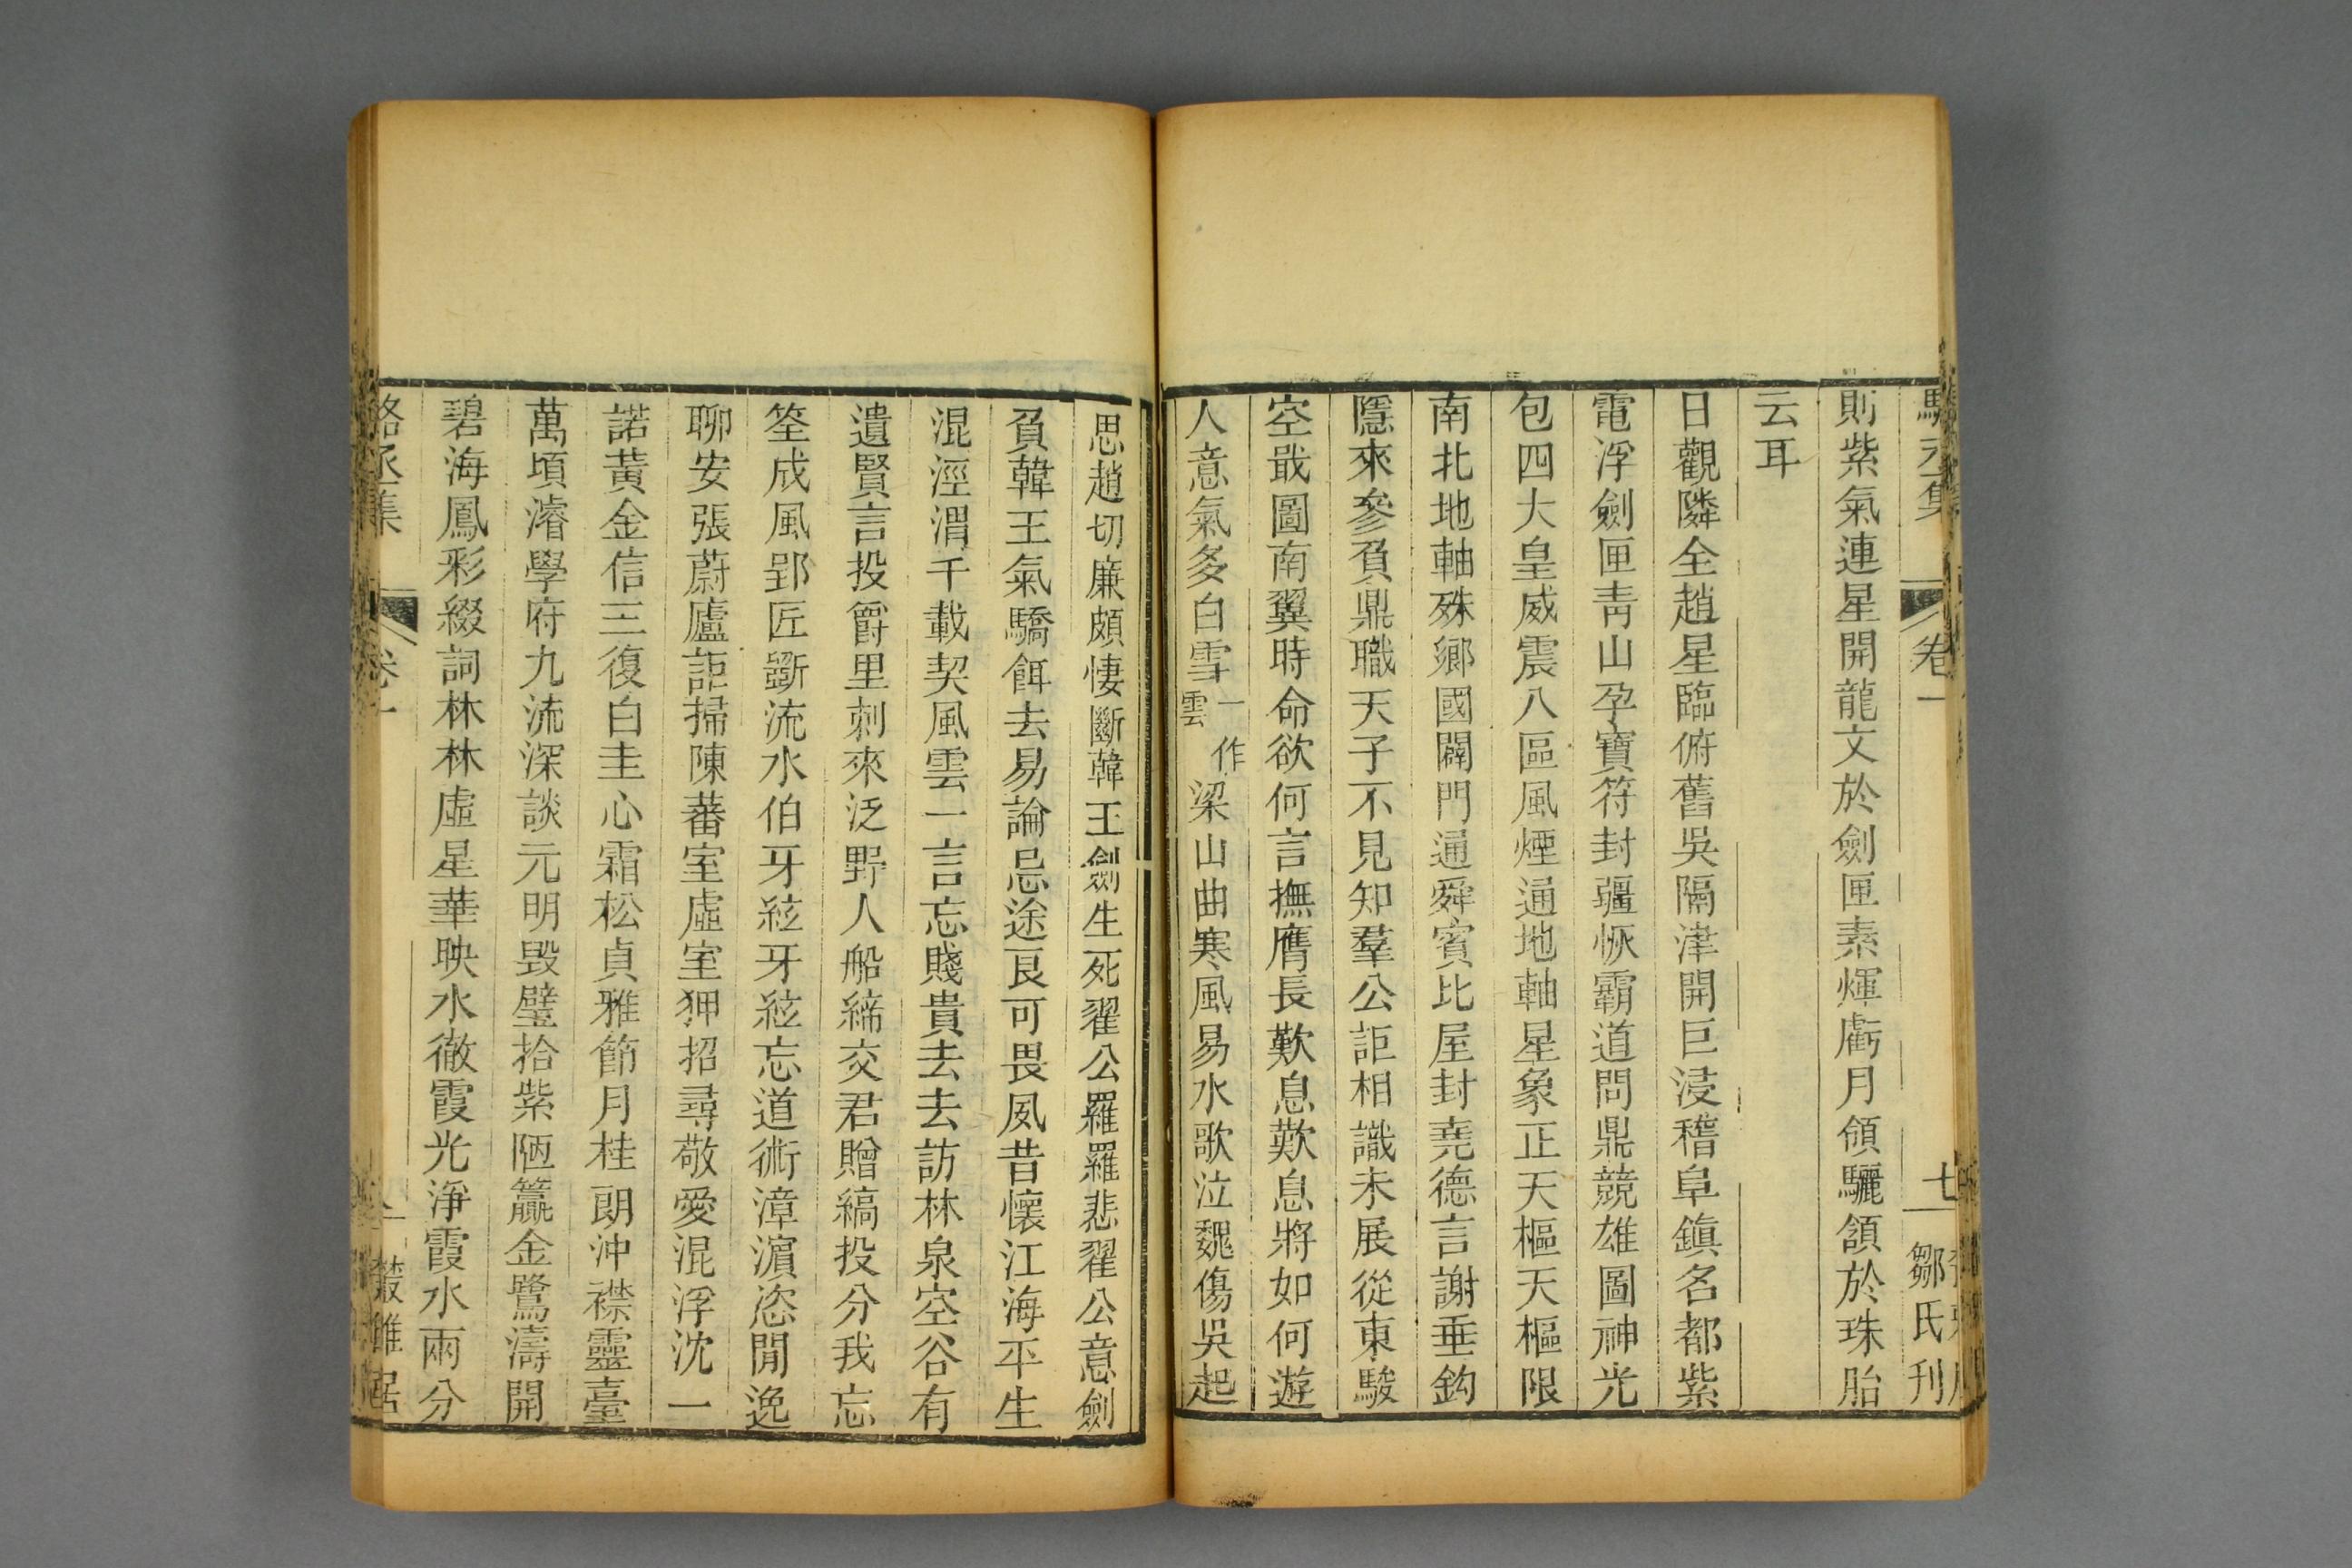 卷一
七
鄒氏刊
則紫氣連星開龍文於劍匣素煇虧月領驪頷於珠胎
云耳
日觀隣全趙星臨俯舊吳隔津開巨浸稽阜鎮名都紫
電浮劍匣靑山孕寶符封疆恢霸道問鼎競雄圖神光
包四大皇威震八區風煙通地軸星象正天樞天樞限
南北地軸殊鄉國闢門通舜賓比屋封堯德言謝垂鈎
隱來參負鼎職天子不見知羣公詎相識未展從東駿
空戢圖南翼時命欲何言撫膺長歎息歎息將如何遊
人意氣多白雪一作雲梁山曲寒風易水歌泣魏傷吳起
思趙切廉頗悽斷韓王劍生死翟公羅羅悲翟公意劍
負韓王氣驕餌去易論忌途艮可畏夙昔懷江海平生
混涇渭千載契風雲一言忘賤貴去去訪林泉空谷有
遺賢言投爵里刺來泛野人船締交君贈縞投分我忘
筌成風郢匠斲流水伯牙絃牙絃忘道術漳濵恣閒逸
聊安張蔚廬詎掃陳蕃室虛室狎招尋敬愛混浮沈一
諾黃金信三復白圭心霜松貞雅節月桂朗沖襟靈臺
萬頃濬學府九流深談元明毁璧拾紫陋籯金鷺濤開
碧海鳳彩綴詞林林虛星華映水徹霞光淨霞水兩分
駱丞集
卷一
叢雅居